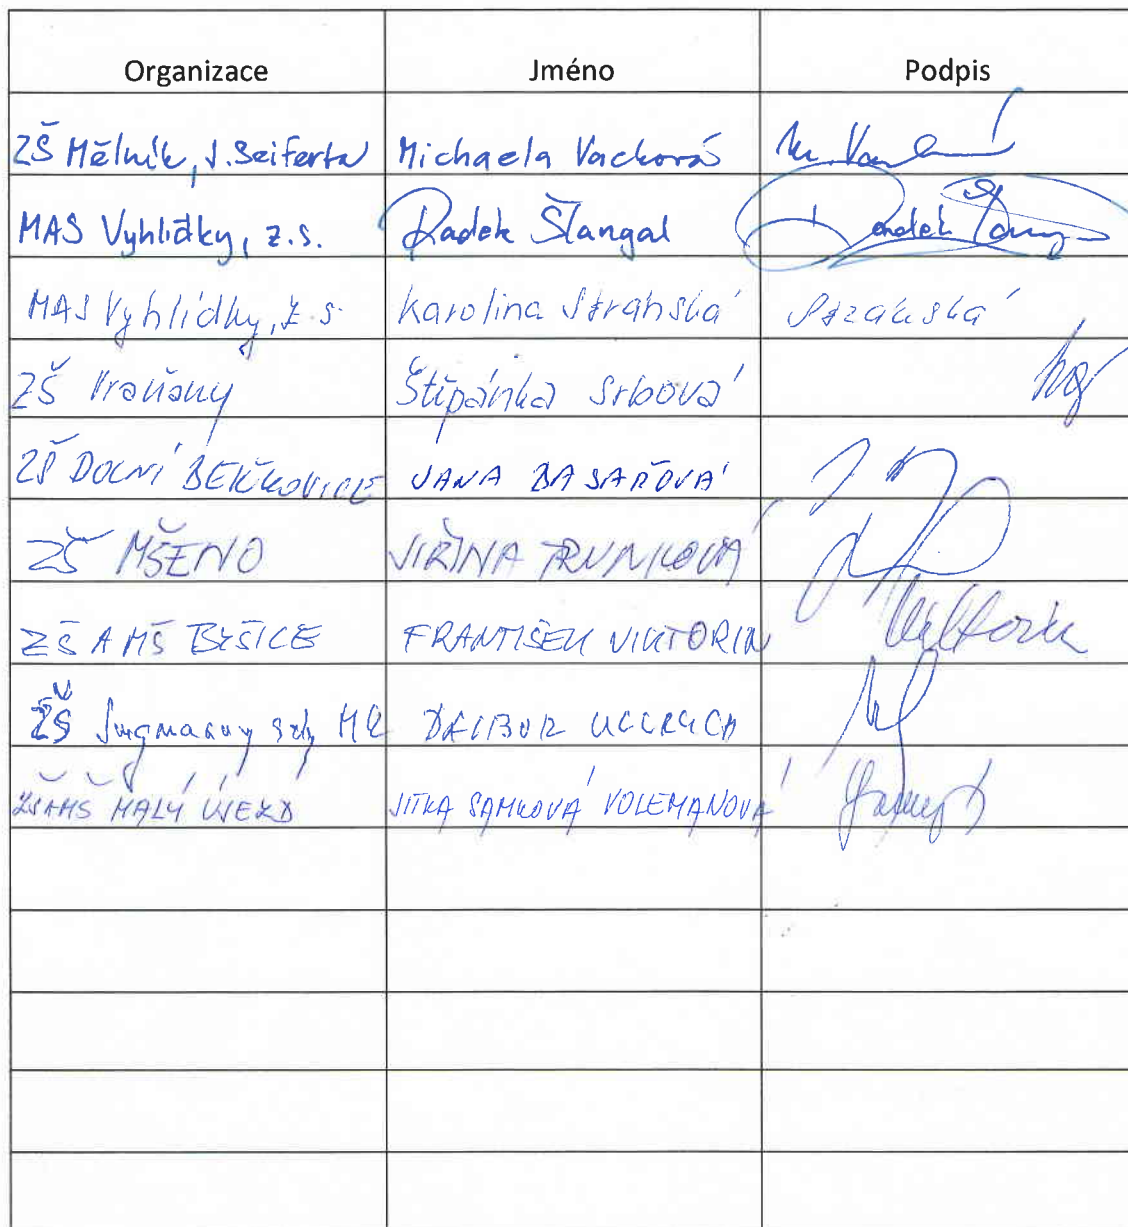 Organizace Jméno Podpis
ZŠ Mělník, J. Seiferta Michaela Vacková
MAS Vyhlídky, z.s. Radek Šlangal Radek
MAS Vyhlídky, z.s. Karolina Stránská Stránská
ZŠ Vraňany Štěpánka Srbová
ZŠ DOLNÍ BEŘKOVICE JANA BASAŘOVÁ
ZŠ MŠENO JIŘINA TRUNKOVÁ
ZŠ A MŠ BYŠICE FRANTIŠEK VIKTORIN Viktorin
ZŠ Jungmannovy sady Mě DALIBOR ULLRYCH
ZŠ A MŠ MALÝ ÚJEZD JITKA SAMKOVÁ VOLEMANOVÁ